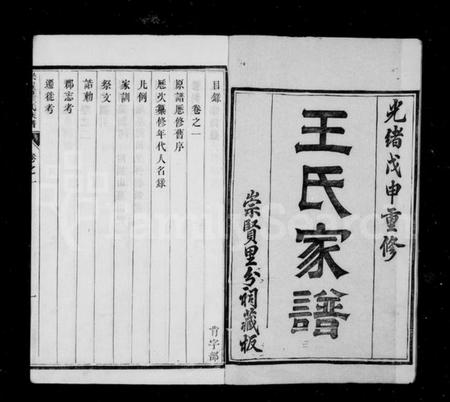 光緒戊申重修
王氏家譜
崇賢里分祠藏板
目錄
卷之一
原譜歷修舊序
歷次纂修年代人名錄
凡例
家訓
祭文
誥勅
郡志考
遷徙考
卷之一
一